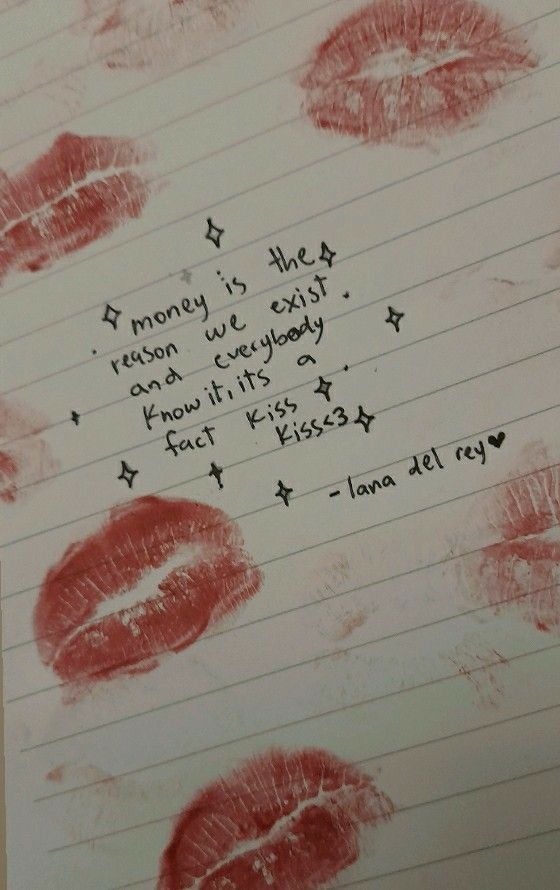 money is the
reason we exist
and everybody
know it, its a
fact kiss
kiss<3
-lana del rey♥